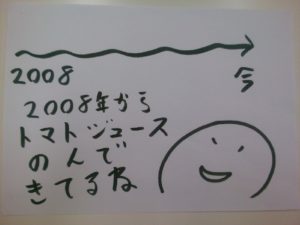 2008
今
2008年から
トマトジュース
のんで
きてるね